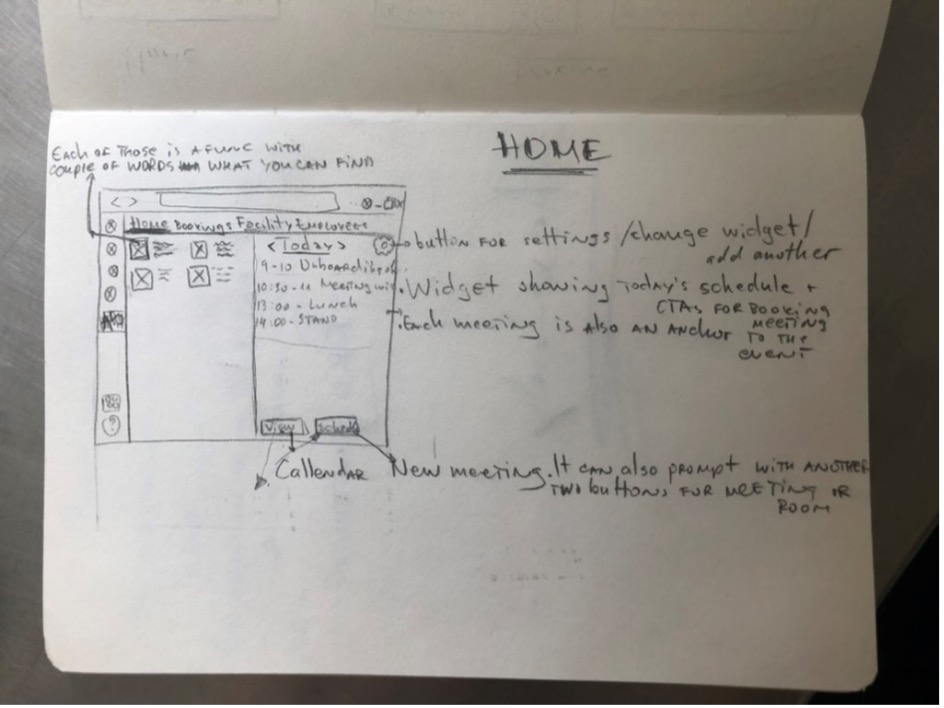 HOME
EACH OF THOSE IS A FUNC WITH
COUPLE OF WORDS WHAT YOU CAN FIND
< >
Home Bookings Facility Employees
< Today >
9-10 Onboarding
10:30-11 Meeting wi
13:00 - Lunch
14:00 - STAND
View
Schedu
button for settings /change widget/
add another
. Widget showing today's schedule +
CTAs FOR BOOKING
MEETING
. Each meeting is also AN ANCHOR
TO THE
EVENT
Callendar
New meeting. It can also prompt WITH ANOTHER
TWO buttons FOR MEETING OR
ROOM
?